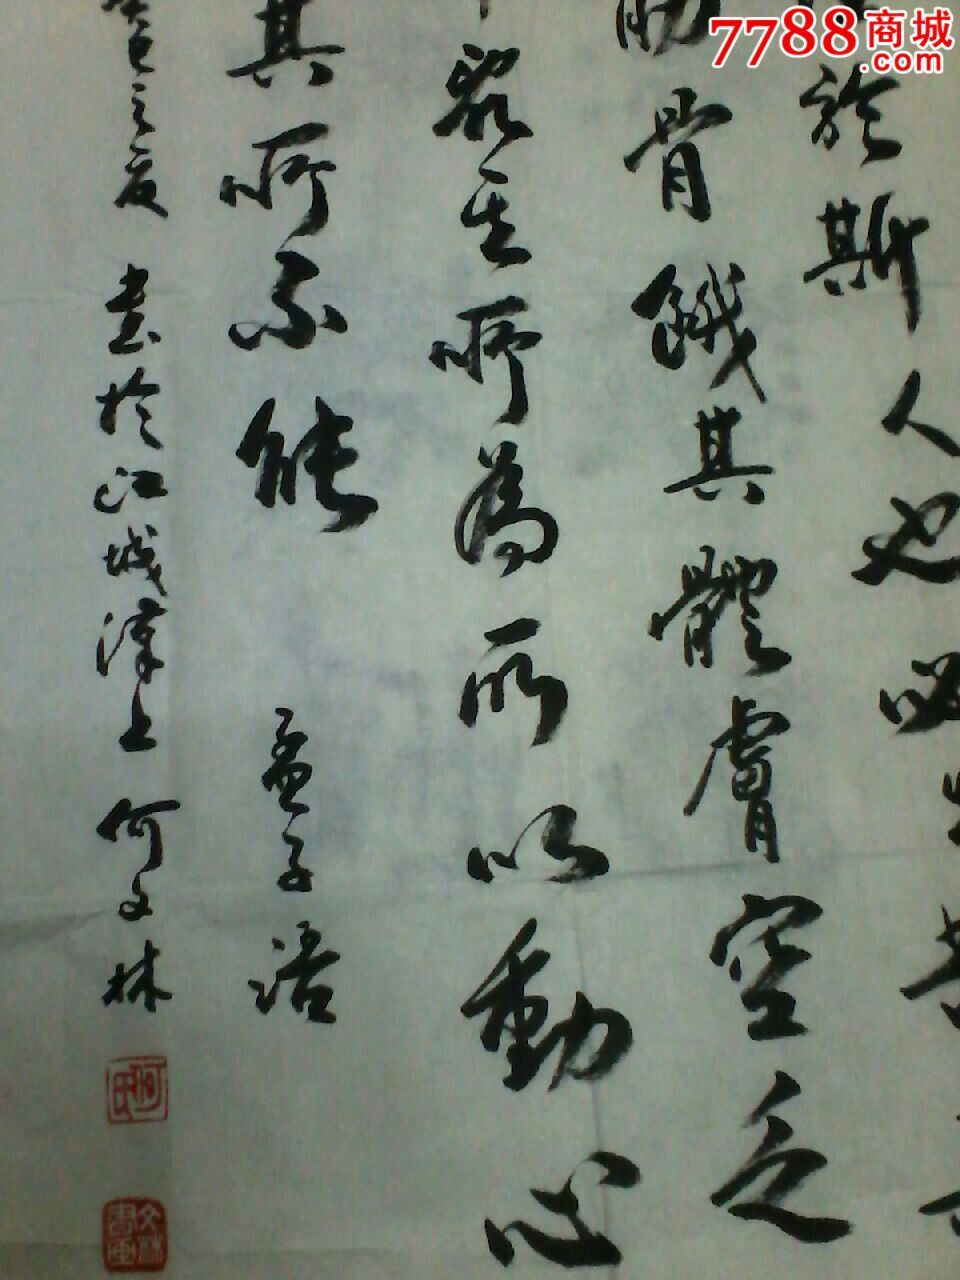 於斯人也必先苦
筋骨餓其體膚空乏
亂其所為所以動心
其所不能 孟子語
之夏 書於江城漢上 何文林
何氏
文林書画
7788商城
.com